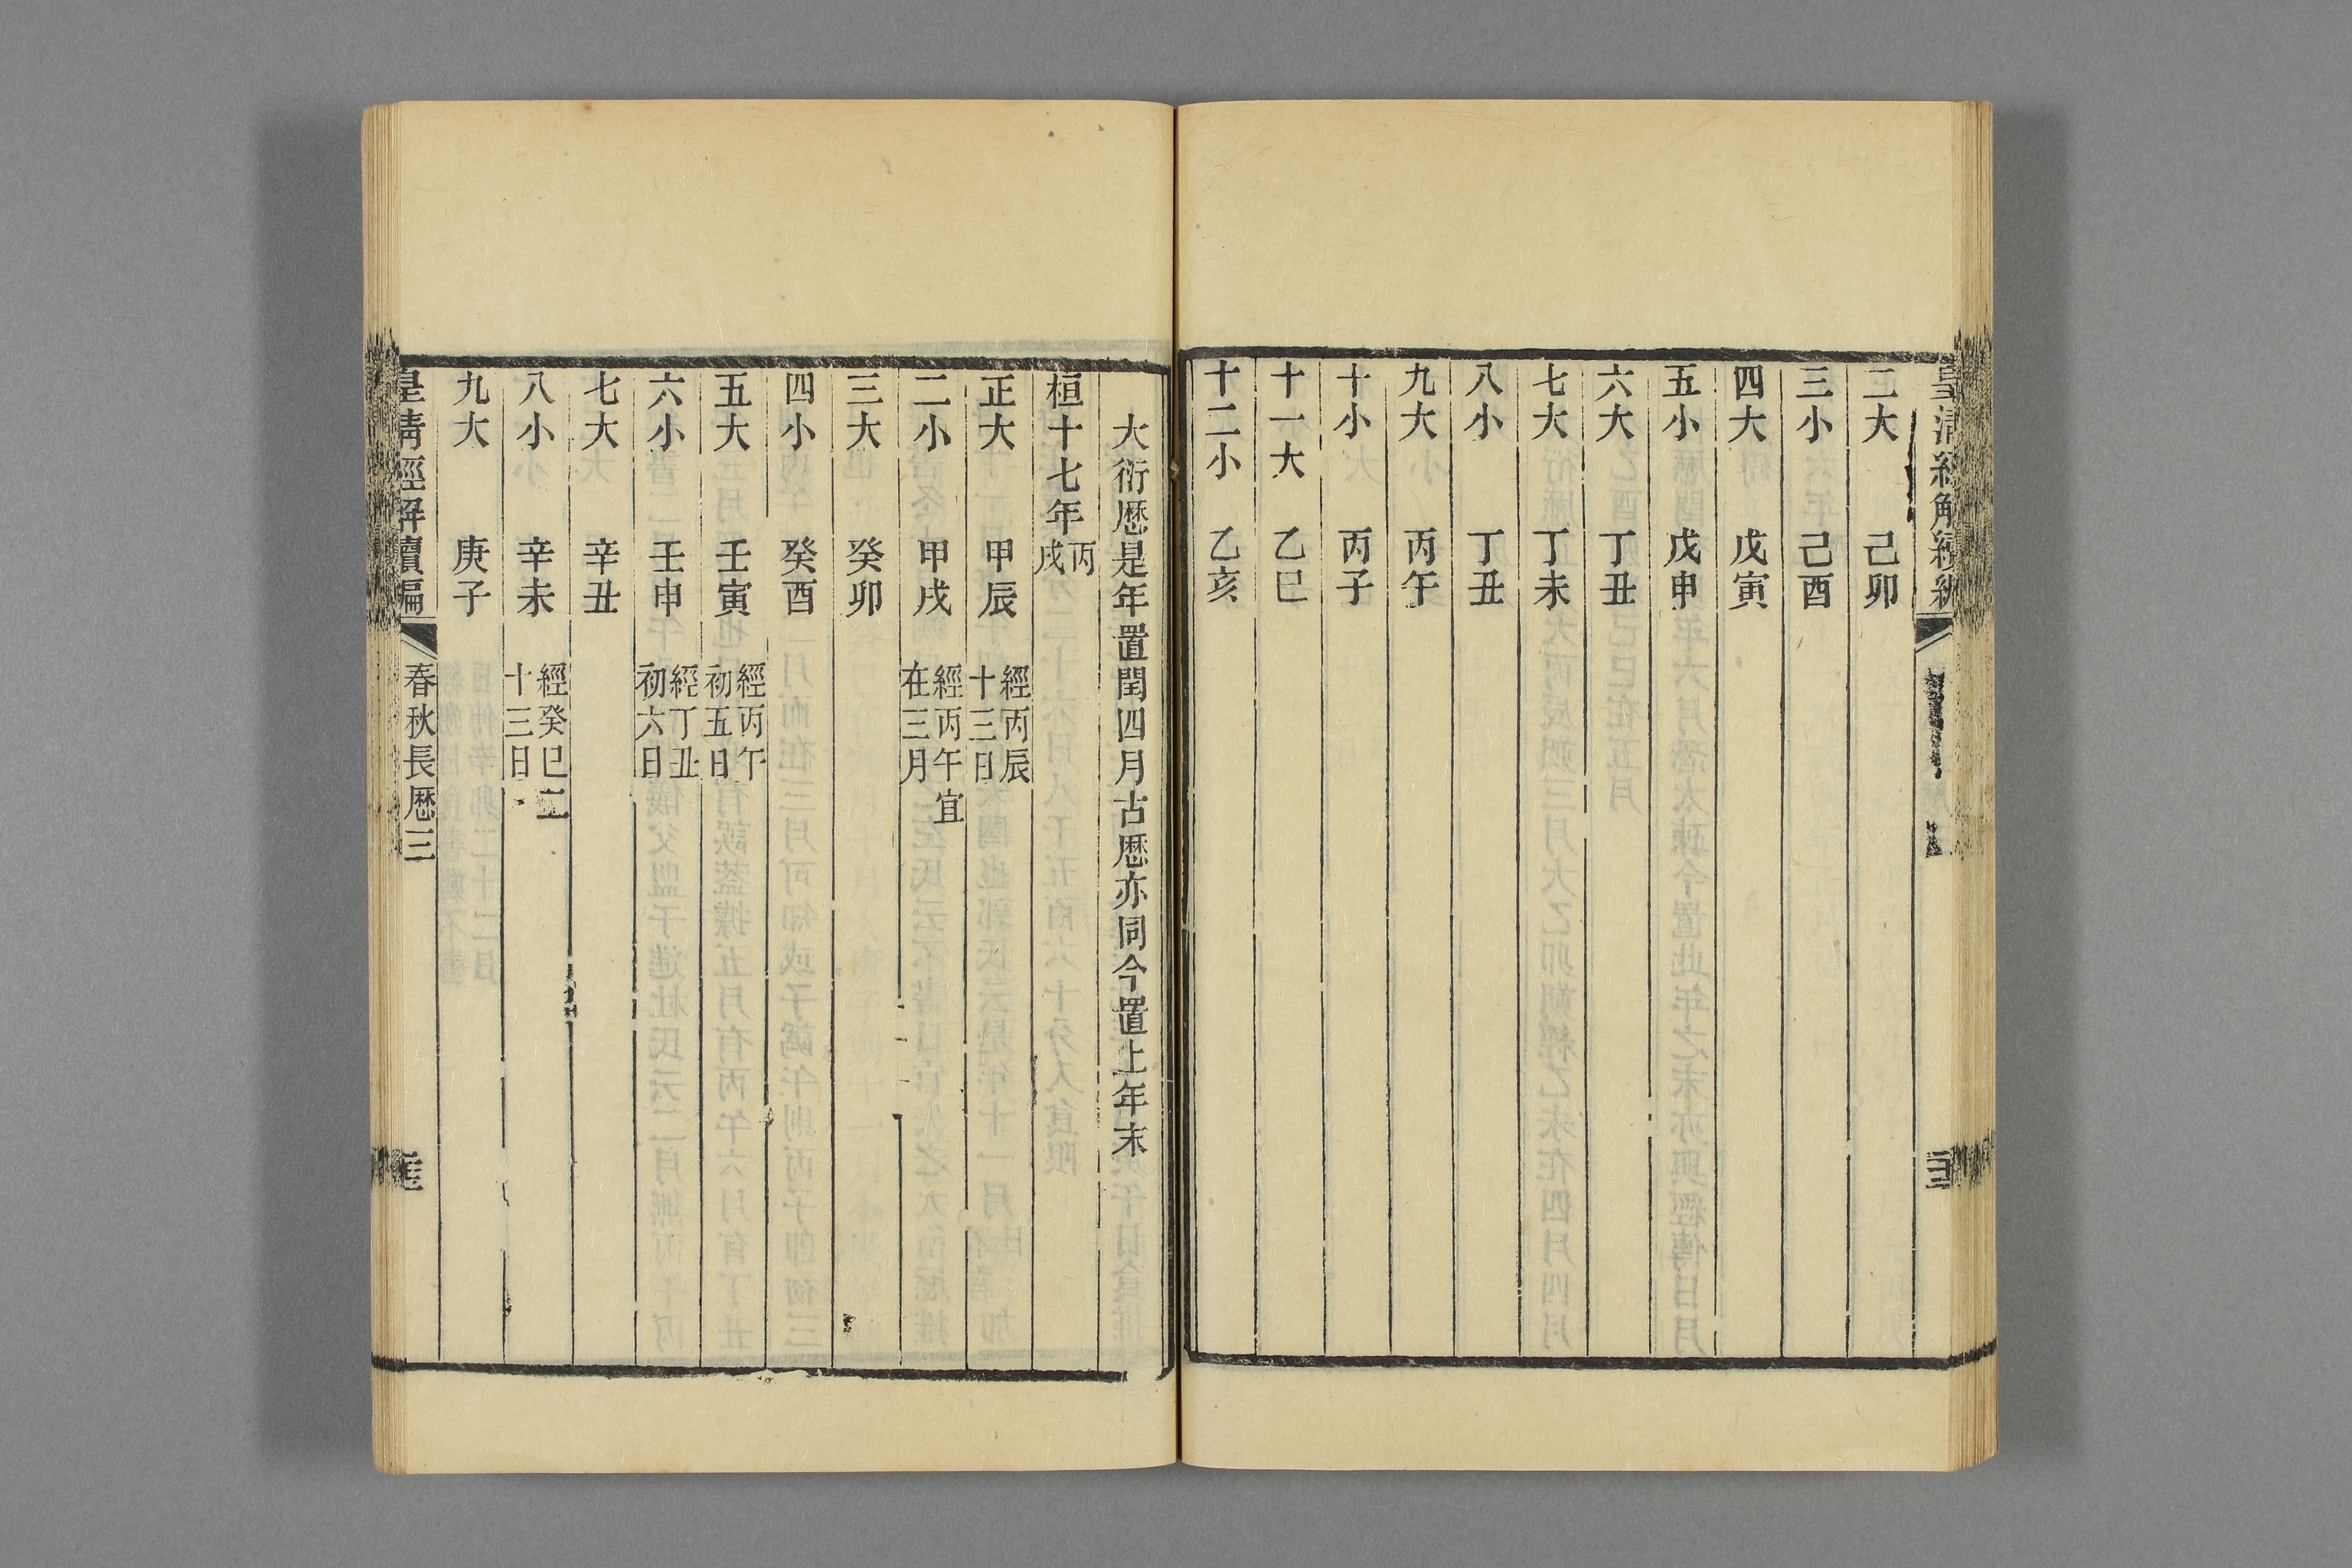 皇清經解續編
二大　己卯
三小　己酉
四大　戊寅
五小　戊申
六大　丁丑
七大　丁未
八小　丁丑
九大　丙午
十小　丙子
十一大　乙巳
十二小　乙亥
大衍厯是年置閏四月古厯亦同今置上年末
桓十七年丙戌
正大　甲辰　經丙辰十三日
二小　甲戌　經丙午宜在三月
三大　癸卯
四小　癸酉
五大　壬寅　經丙午初五日
六小　壬申　經丁丑初六日
七大　辛丑
八小　辛未　經癸巳二十三日
九大　庚子
皇清經解續編　春秋長厯三